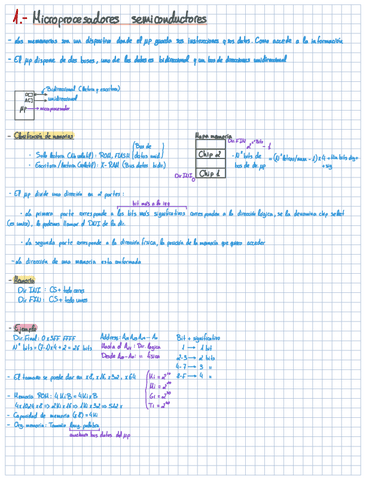 1.- Microprocesadores semiconductores
- Las memorias son un dispositivo donde el μp guarda sus instrucciones y sus datos. Como accede a la información
- El μp dispone de dos buses, uno de los datos es bidireccional y un bus de direcciones unidireccional
Bidireccional (lectura y escritura)
unidireccional
microprocesador
- Clasificación de memorias
- Solo lectura (No volátil): ROM, FLASH (Bus de datos unid.)
- Escritura/lectura (volátil): X-RAM (Bus datos bidi)
Mapa memoria
Dir FIN
Chip 2
Chip 1
Dir INI
- Nº bits de bus de dir μp
- El μp divide una dirección en 2 partes:
bit más a la izq
- La primera parte corresponde a los bits más significativos corresponden a la dirección lógica, se la denomina chip select
(en unos), lo podemos llamar el DNI de la dir.
- La segunda parte corresponde a la dirección física, la posición de la memoria que quiere acceder
- La dirección de una memoria esta conformada
- Memoria
Dir INI : CS + todo ceros
Dir FIN : CS + todo unos
- Ejemplo
Dir. Final: 0x3FF FFFF
Nº bits = (7-1)x4 + 2 = 26 bits
Bit + significativo
1 → 1 bit
2-3 → 2 bits
4-7 → 3 "
8-F → 4 "
- El tamaño se puede dar en x8, x16, x32, x64
Ki = 2^10
Mi = 2^20
Gi = 2^30
Ti = 2^40
- Memoria ROM: 4KiB = 4Ki x 8
- Capacidad de memoria (x8) = 4Ki
- Org. memoria: Tamaño long. palabra